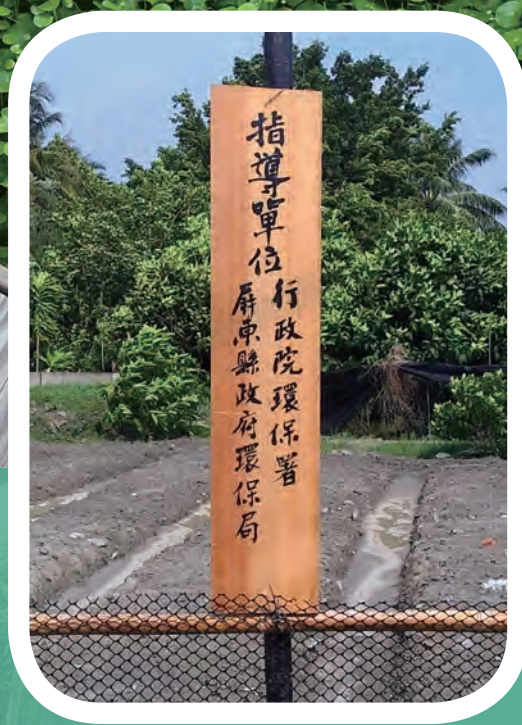 指導單位
行政院環保署
屏東縣政府環保局